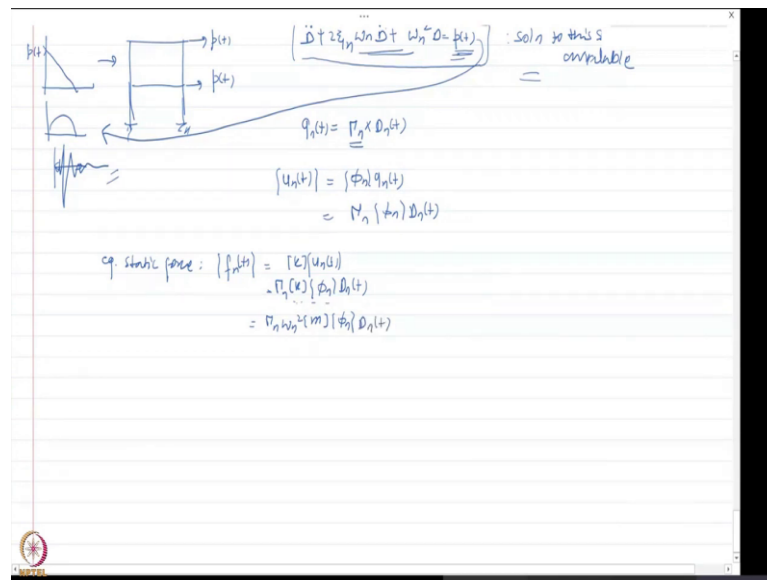 p(t)
p(t)
p(t)
D̈ + 2ξₙ ωₙ Ḋ + ωₙ² D = p(t) : soln to this is available
qₙ(t) = Γₙ × Dₙ(t)
{uₙ(t)} = {ϕₙ} qₙ(t)
= Γₙ {ϕₙ} Dₙ(t)
eq. static force : {fₙ(t)} = [k]{uₙ(t)}
= Γₙ [k] {ϕₙ} Dₙ(t)
= Γₙ ωₙ² [m] {ϕₙ} Dₙ(t)
NPTEL